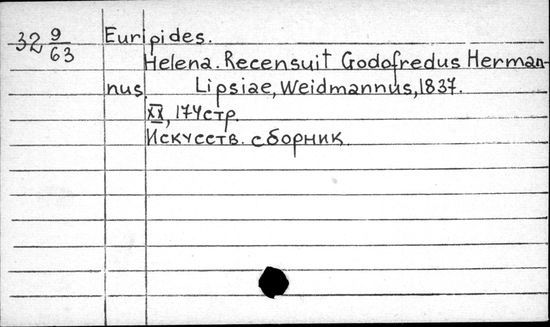 32 9/63
Euripides.
Helena. Recensuit Godofredus Herman-
nus. Lipsiae, Weidmannus, 1837.
XX, 174 стр.
Искусств. сборник.